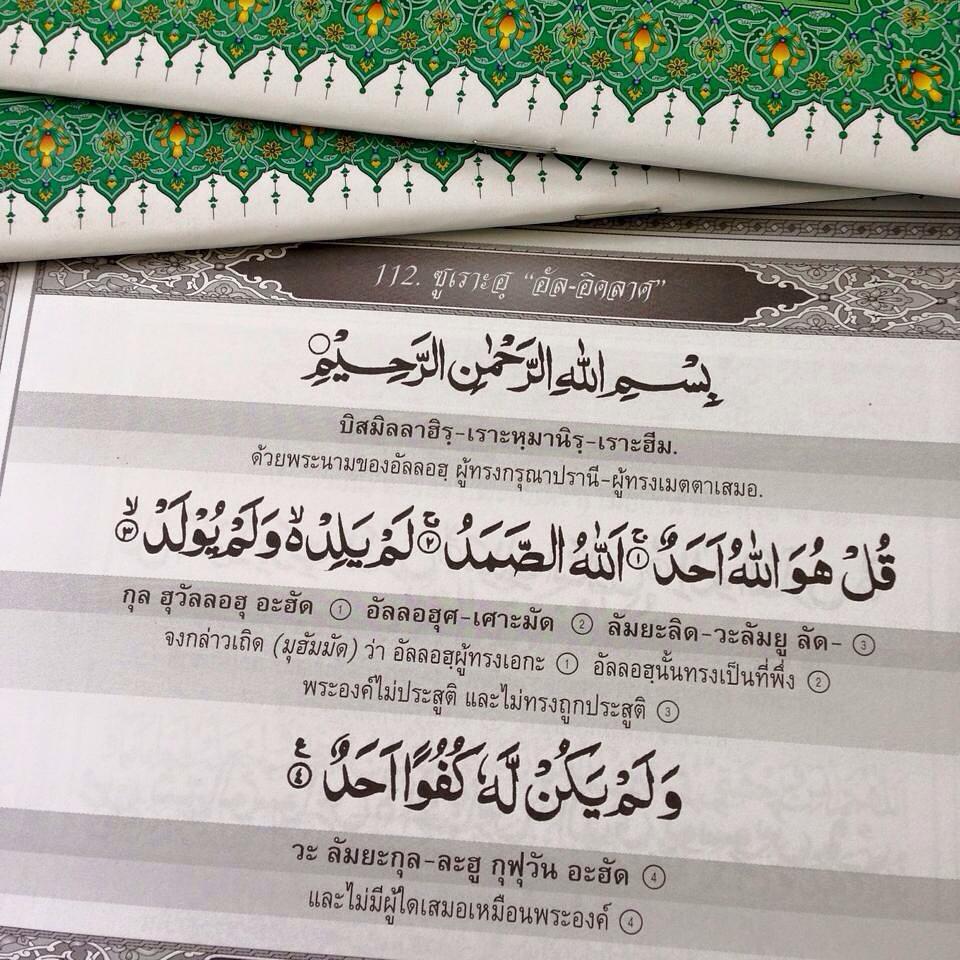 112. ซูเราะฮฺ “อัล-อิคลาศ”
بِسْمِ اللهِ الرَّحْمٰنِ الرَّحِيْمِ ○
บิสมิลลาฮิรฺ-เราะหฺมานิรฺ-เราะฮีม.
ด้วยพระนามของอัลลอฮฺ ผู้ทรงกรุณาปรานี-ผู้ทรงเมตตาเสมอ.
قُلْ هُوَ اللهُ اَحَدٌ ۚ ① اَللهُ الصَّمَدُ ۚ ② لَمْ يَلِدْ ۙ وَلَمْ يُوْلَدْ ۙ ③
กุล ฮุวัลลอฮุ อะฮัด ① อัลลอฮุศ-เศาะมัด ② ลัมยะลิด-วะลัมยู ลัด- ③
จงกล่าวเถิด (มุฮัมมัด) ว่า อัลลอฮฺผู้ทรงเอกะ ① อัลลอฮฺนั้นทรงเป็นที่พึ่ง ②
พระองค์ไม่ประสูติ และไม่ทรงถูกประสูติ ③
وَلَمْ يَكُنْ لَّهٗ كُفُوًا اَحَدٌ ۚ ④
วะ ลัมยะกุล-ละฮู กุฟุวัน อะฮัด ④
และไม่มีผู้ใดเสมอเหมือนพระองค์ ④